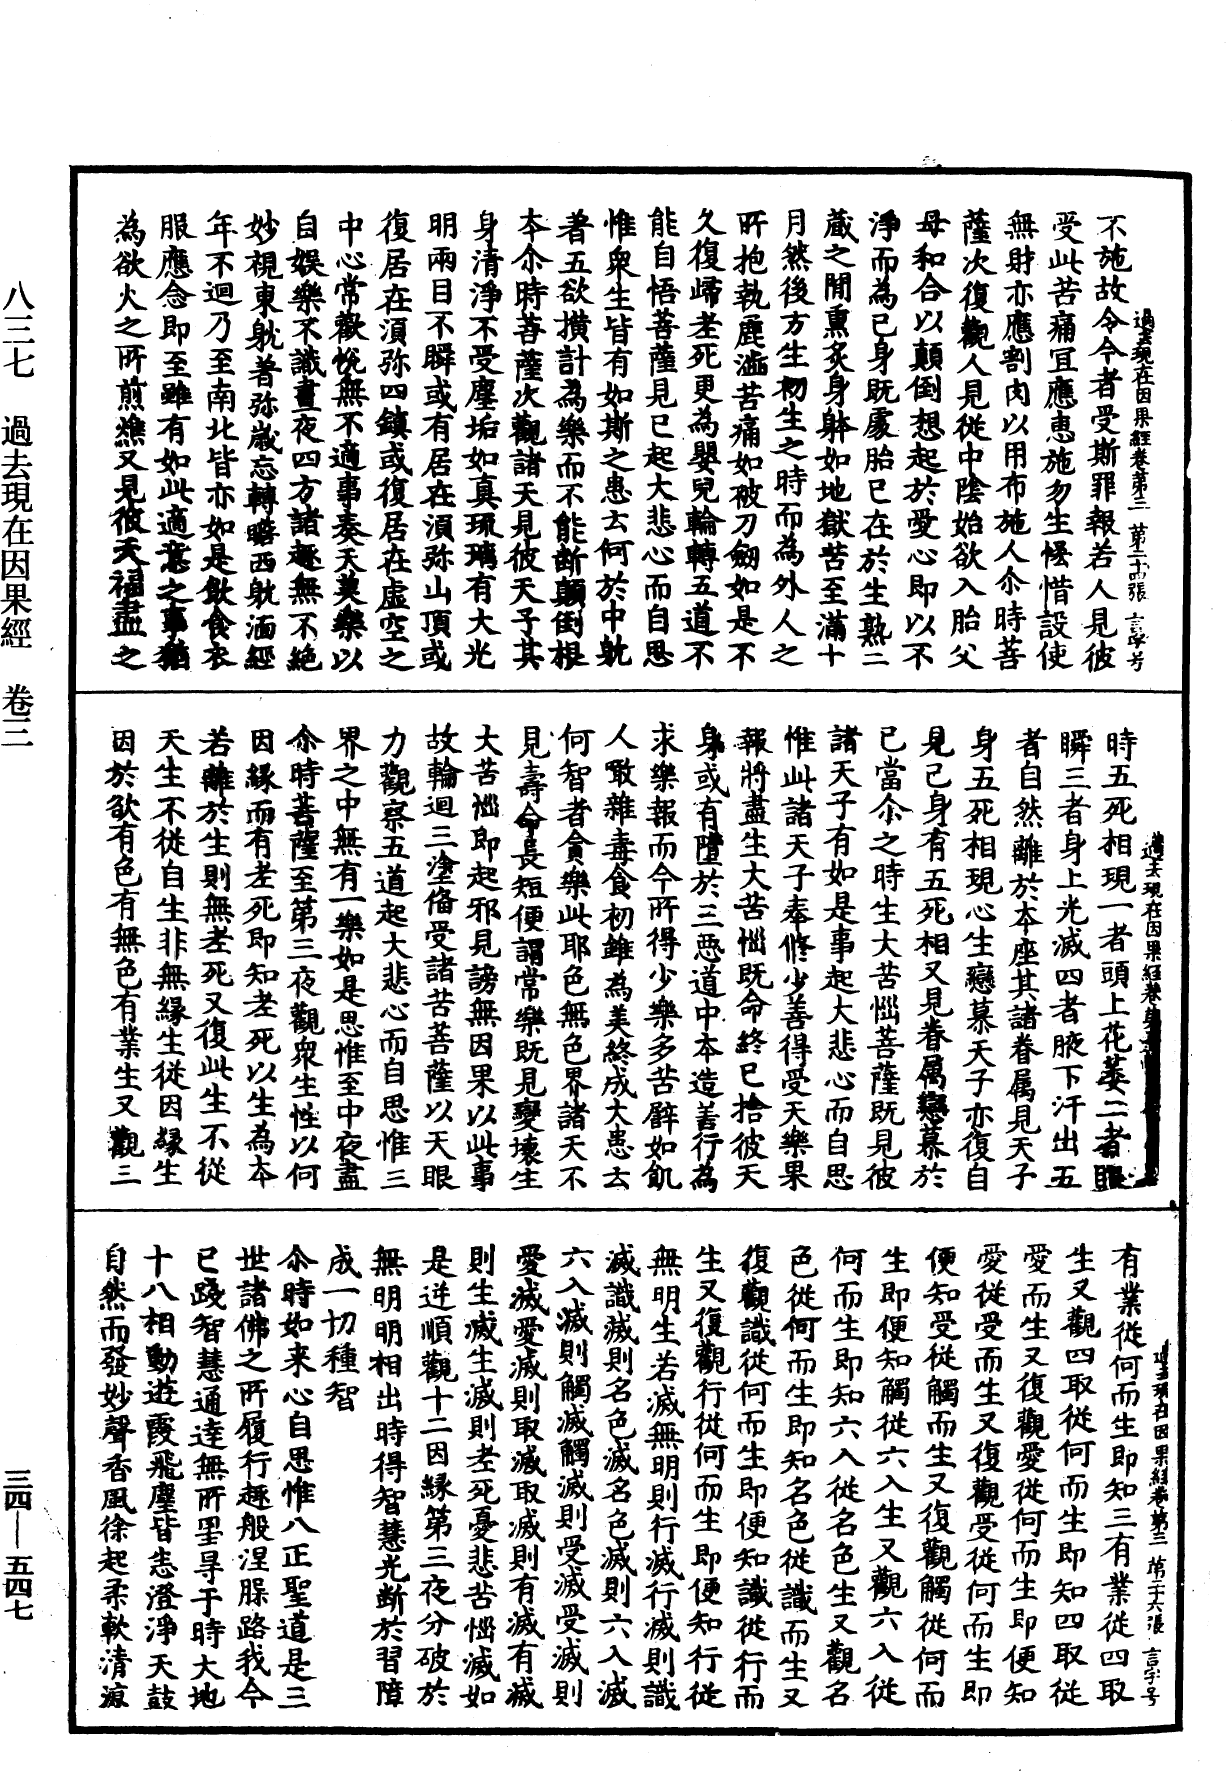 過去現在因果經卷第三 第二十四張 言字号
不施故令今者受斯罪報若人見彼
受此苦痛冝應惠施勿生悋惜設使
無財亦應割肉以用布施人尒時菩
薩次復觀人見從中陰始欲入胎父
母和合以顛倒想起於愛心即以不
淨而為己身既處胎已在於生熟二
藏之閒熏炙身躰如地獄苦至滿十
月然後方生初生之時而為外人之
所抱執麁澁苦痛如被刀劒如是不
久復歸老死更為嬰兒輪轉五道不
能自悟菩薩見已起大悲心而自思
惟衆生皆有如斯之患云何於中躭
著五欲撗計為樂而不能斷顛倒根
本尒時菩薩次觀諸天見彼天子其
身清淨不受塵垢如真琉璃有大光
明兩目不瞬或有居在湏弥山頂或
復居在湏弥四鎮或復居在虚空之
中心常歡悅無不適事奏天美樂以
自娛樂不識晝夜四方諸趣無不絶
妙視東躭著弥歲忘轉瞻西躭湎經
年不迴乃至南北皆亦如是飲食衣
服應念即至雖有如此適意之事猶
為欲火之所煎燋又見彼天福盡之
過去現在因果經卷第
時五死相現一者頭上花萎二者眼
瞬三者身上光滅四者腋下汗出五
者自然離於本座其諸眷属見天子
身五死相現心生戀慕天子亦復自
見己身有五死相又見眷属戀慕於
已當尒之時生大苦惱菩薩既見彼
諸天子有如是事起大悲心而自思
惟此諸天子奉修少善得受天樂果
報將盡生大苦惱既命終已捨彼天
身或有墮於三惡道中本造善行為
求樂報而今所得少樂多苦譬如飢
人噉雜毒食初雖為美終成大患云
何智者貪樂此耶色無色界諸天不
見壽命長短便謂常樂既見變壞生
大苦惱即起邪見謗無因果以此事
故輪迴三塗俻受諸苦菩薩以天眼
力觀察五道起大悲心而自思惟三
界之中無有一樂如是思惟至中夜盡
尒時菩薩至第三夜觀衆生性以何
因緣而有老死即知老死以生為本
若離於生則無老死又復此生不從
天生不從自生非無緣生從因緣生
因於欲有色有無色有業生又觀三
過去現在因果經卷第三 第二十六張 言字号
有業從何而生即知三有業從四取
生又觀四取從何而生即知四取從
愛而生又復觀愛從何而生即便知
愛從受而生又復觀受從何而生即
便知受從觸而生又復觀觸從何而
生即便知觸從六入生又觀六入從
何而生即知六入從名色生又觀名
色從何而生即知名色從識而生又
復觀識從何而生即便知識從行而
生又復觀行從何而生即便知行從
無明生若滅無明則行滅行滅則識
滅識滅則名色滅名色滅則六入滅
六入滅則觸滅觸滅則受滅受滅則
愛滅愛滅則取滅取滅則有滅有滅
則生滅生滅則老死憂悲苦惱滅如
是逆順觀十二因緣第三夜分破於
無明明相出時得智慧光斷於習障
成一切種智
尒時如来心自思惟八正聖道是三
世諸佛之所履行趣般涅槃路我今
已踐智慧通達無所罣㝵于時大地
十八相動遊霞飛塵皆悉澄淨天鼓
自然而發妙聲香風徐起柔軟清涼
八三七 過去現在因果經 卷三
三四—五四七